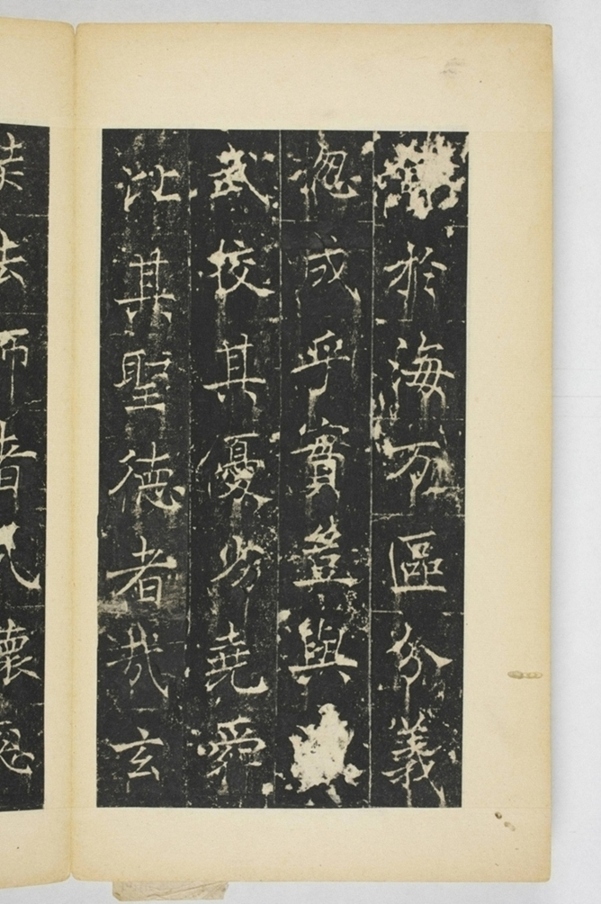 於海万區分義
惣成乎實豈與
武校其優劣堯舜
比其聖德者哉玄